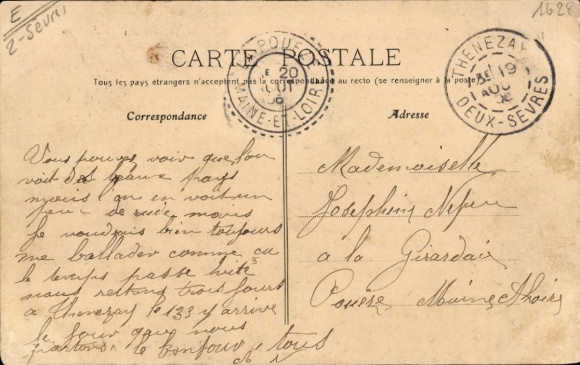 E
2-Sèvres
1628
CARTE POSTALE
Tous les pays étrangers n'acceptent pas la correspondance au recto (se renseigner à la poste)
POUËZE
20
AOUT
06
MAINE-ET-LOIRE
THENEZAY
19
AOU
06
DEUX-SÈVRES
Correspondance
Adresse
Vous pouvez voir que l'on
voit des beaux pays
mais l'on en voit un
peu de rude mais
Je voudrais bien toujours
me ballader comme ca
le temps passe vite
nous restons trois jours
a Thenezay le 133 y arrive
le jour que nous
partons le bonjour a tous
Mademoiselle
Josephine Nepveu
a la Girardais
Poueze Maine & Loire